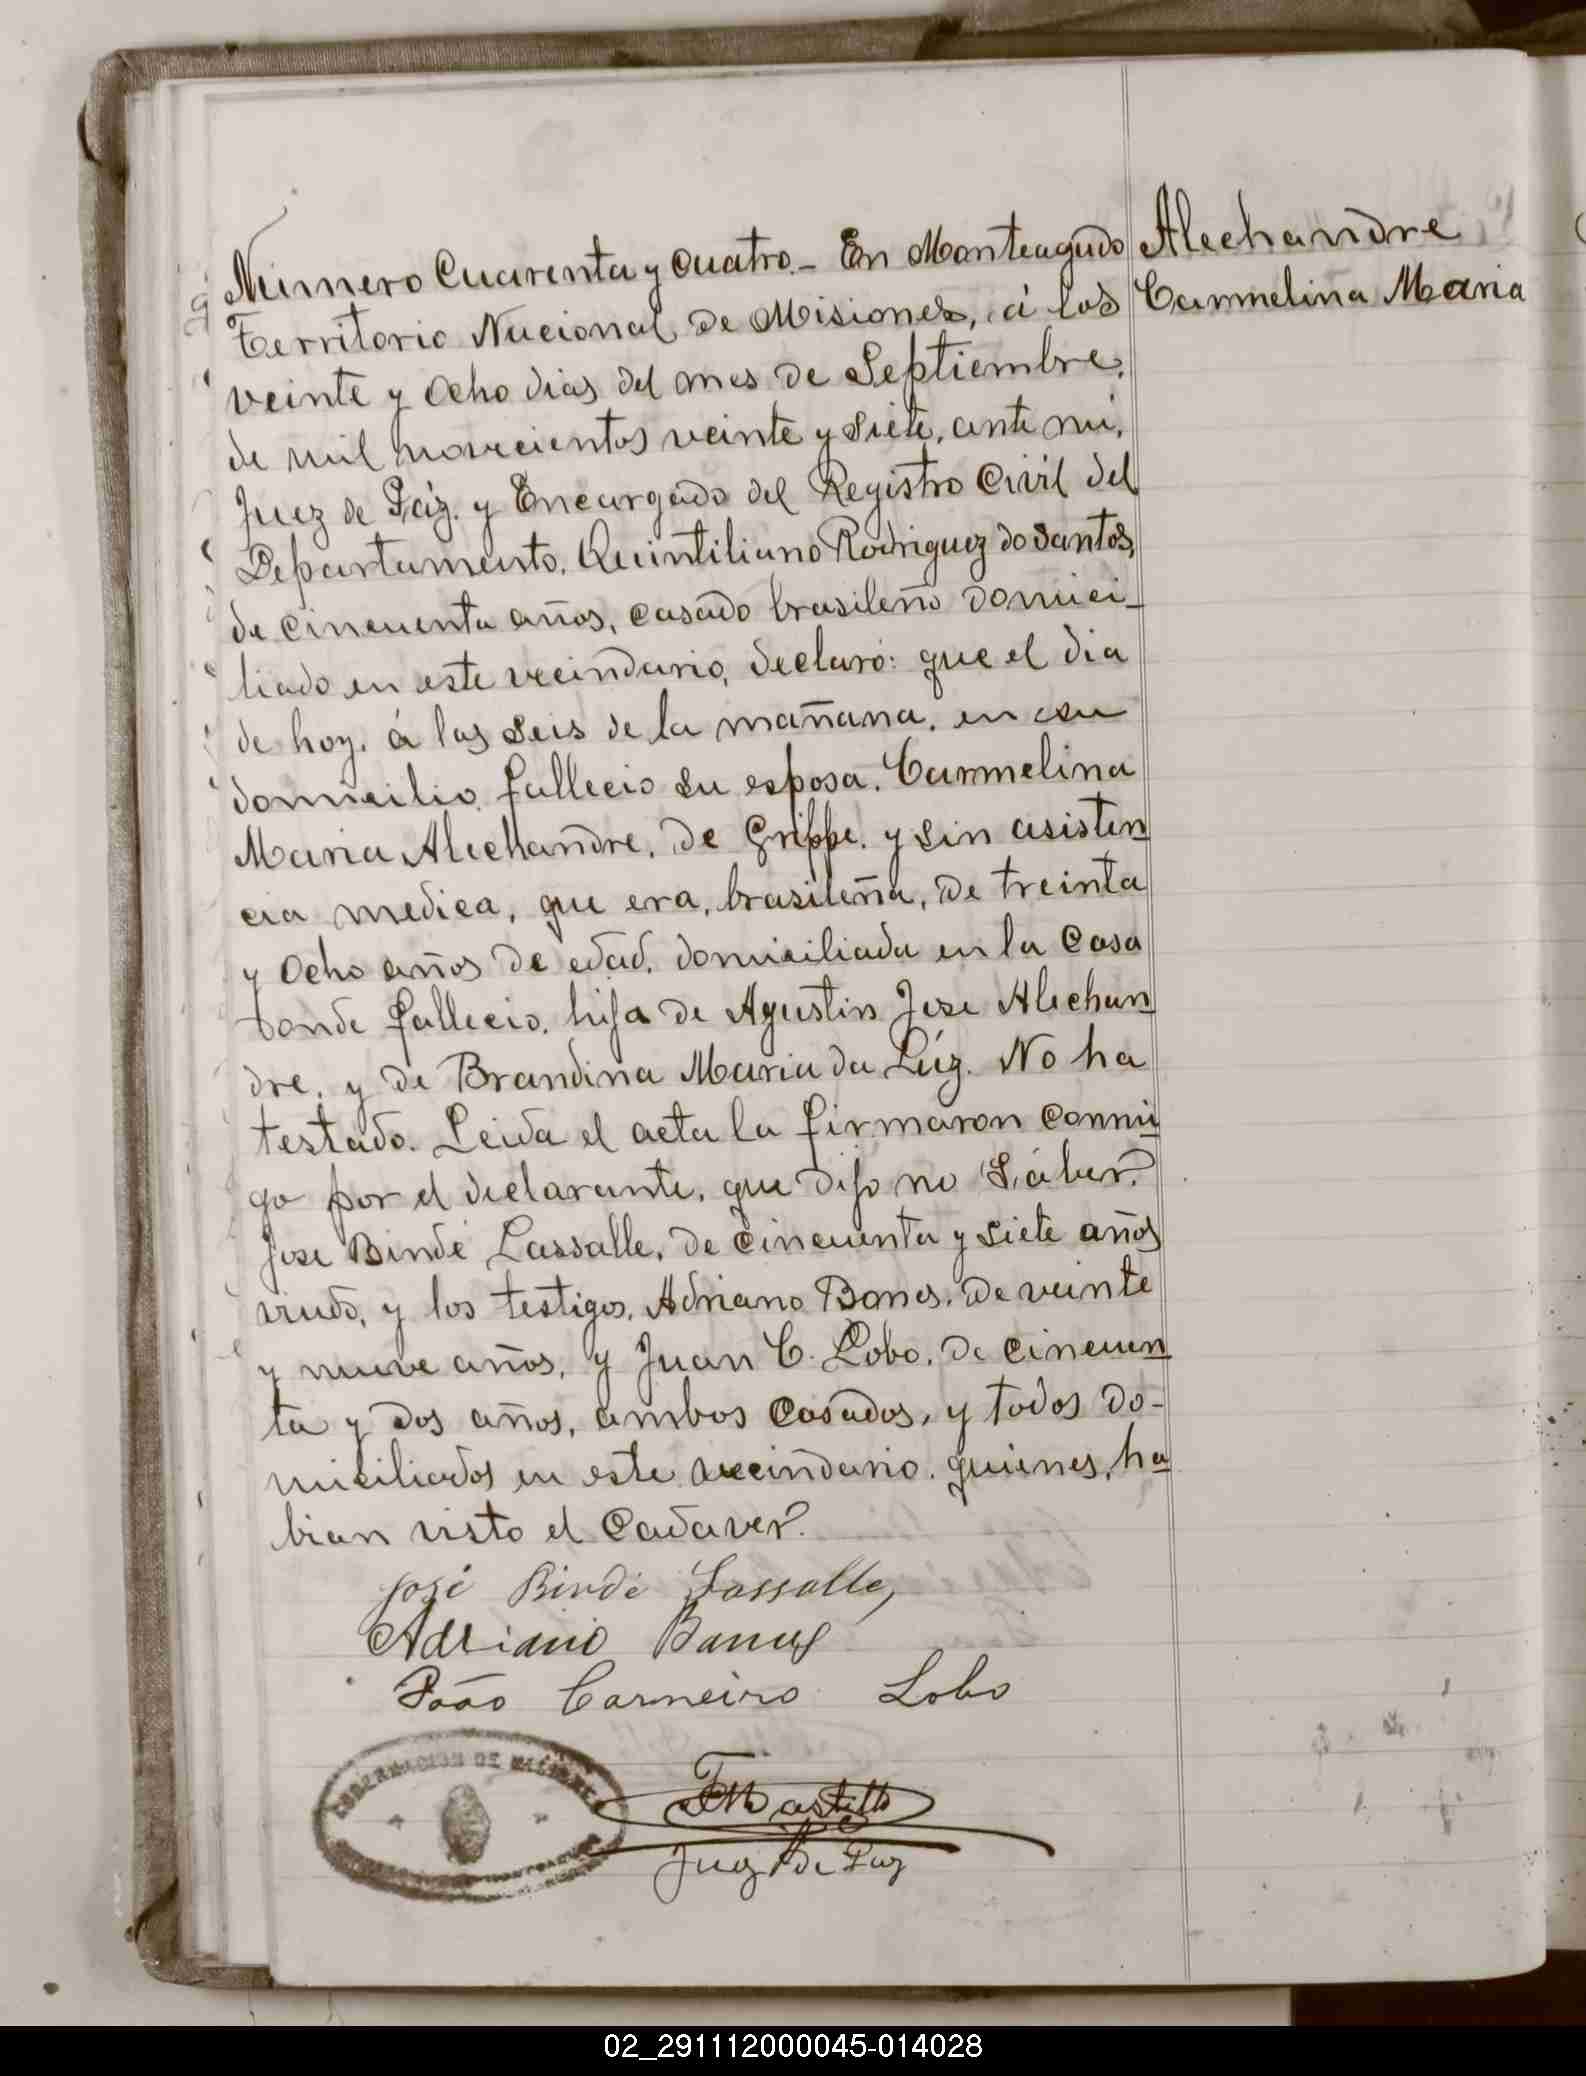 Número Cuarenta y Cuatro.- En Monteagudo
Territorio Nacional de Misiones, á los
veinte y Ocho dias del mes de Septiembre,
de mil novecientos veinte y siete, ante mi,
Juez de Páz. y Encargado del Registro Civil del
Departamento. Quintiliano Rodriguez do Santos,
de cincuenta años, casado brasileño domici-
liado en este vecindario, declaró: que el dia
de hoy, á las seis de la mañana, en su
domicilio fallecio su esposa. Carmelina
Maria Alechandre, de Grippe. y sin asisten
cia medica, que era, brasileña, de treinta
y Ocho años de edad. domiciliada en la Casa
donde fallecio, hija de Agustin Jose Alechan
dre, y de Brandina Maria da Lúz. No ha
testado. Leida el acta la firmaron conmi
go por el declarante, que dijo no Sáber,
Jose Bindé Lassalle, de cincuenta y siete años
viudo, y los testigos, Adriano Bones, de veinte
y nueve años, y Juan C. Lobo, de cincuen
ta y dos años, ambos Casados, y todos do-
miciliados en este vecindario. quienes, ha
bian visto el Cadaver.
Alechandre
Carmelina Maria
José Bindé Lassalle,
Adriano
João Carneiro Lobo
GOBERNACION DE MISIONES
Juez de Paz
02_291112000045-014028